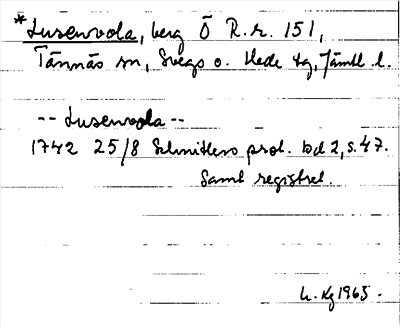 *Lusenvola, berg Ö R.r. 151,
Tännäs sn, Svegs o. Hede tg, Jämtl. l.
-- Lusenvola --
1742 25/8 Schnitlers prot. bd 2, s. 47.
Samt registret.
h. Kg 1965.